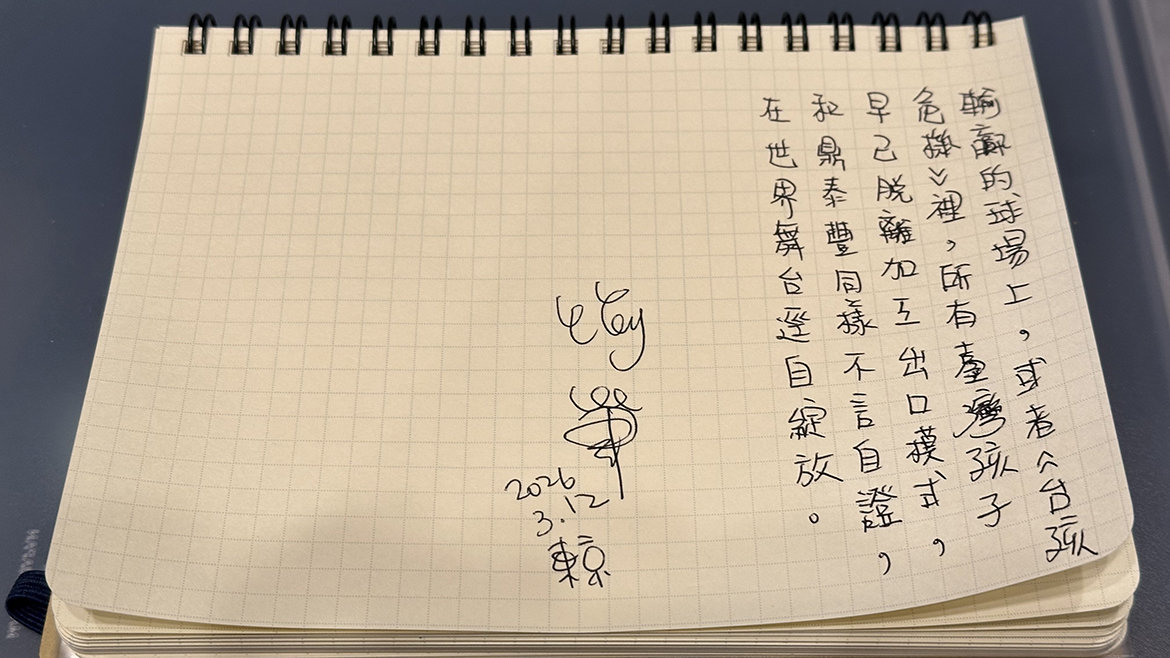 輸贏的球場上，或者︿台孩
危機﹀裡，所有臺灣孩子
早已脫離加工出口模式，
和鼎泰豐同樣不言自證，
在世界舞台逕自綻放。
2026
3.12
東京